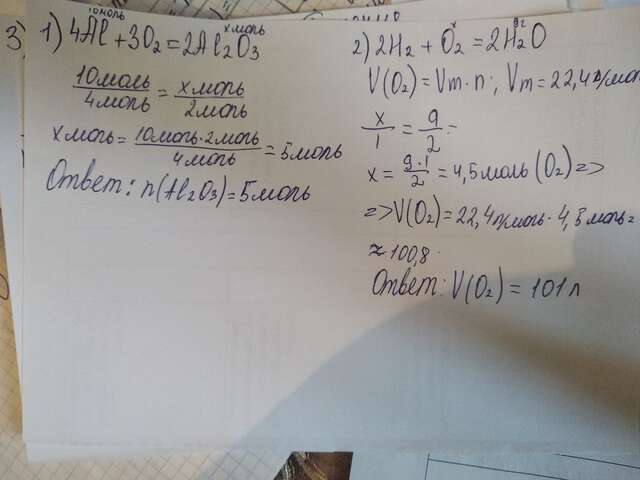 3)
1) 4Al + 3O₂ = 2Al₂O₃
10моль х моль
10моль / 4моль = х моль / 2моль
х моль = 10моль · 2моль / 4моль = 5моль
Ответ: n(Al₂O₃) = 5моль
2) 2H₂ + O₂ = 2H₂O
х 9г
V(O₂) = Vm · n ; Vm = 22,4 л/моль
х / 1 = 9 / 2
х = 9·1 / 2 = 4,5 моль (O₂) =>
=> V(O₂) = 22,4 л/моль · 4,5 моль =
≈ 100,8
Ответ: V(O₂) = 101 л